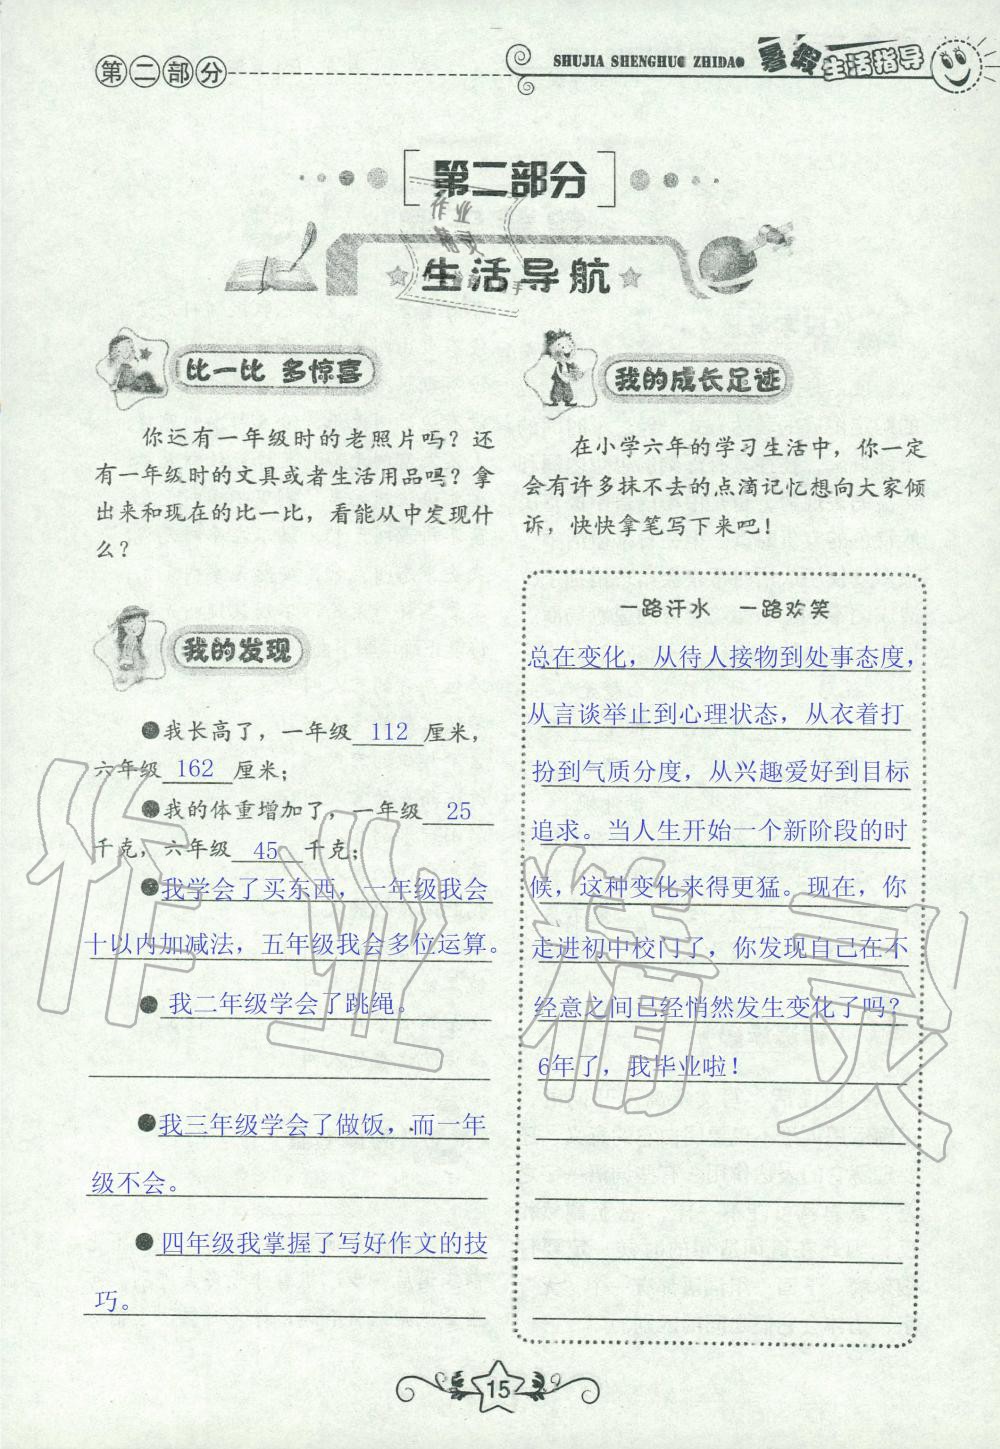 第二部分
SHUJIA SHENGHUO ZHIDAO 暑假生活指导
第二部分
生活导航
比一比 多惊喜
你还有一年级时的老照片吗？还
有一年级时的文具或者生活用品吗？拿
出来和现在的比一比，看能从中发现什
么？
我的发现
●我长高了，一年级 112 厘米，
六年级 162 厘米；
●我的体重增加了，一年级 25
千克，六年级 45 千克；
●我学会了买东西，一年级我会
十以内加减法，五年级我会多位运算。
● 我二年级学会了跳绳。
●我三年级学会了做饭，而一年
级不会。
● 四年级我掌握了写好作文的技
巧。
我的成长足迹
在小学六年的学习生活中，你一定
会有许多抹不去的点滴记忆想向大家倾
诉，快快拿笔写下来吧！
一路汗水 一路欢笑
总在变化，从待人接物到处事态度，
从言谈举止到心理状态，从衣着打
扮到气质分度，从兴趣爱好到目标
追求。当人生开始一个新阶段的时
候，这种变化来得更猛。现在，你
走进初中校门了，你发现自己在不
经意之间已经悄然发生变化了吗？
6年了，我毕业啦！
15
作业精灵